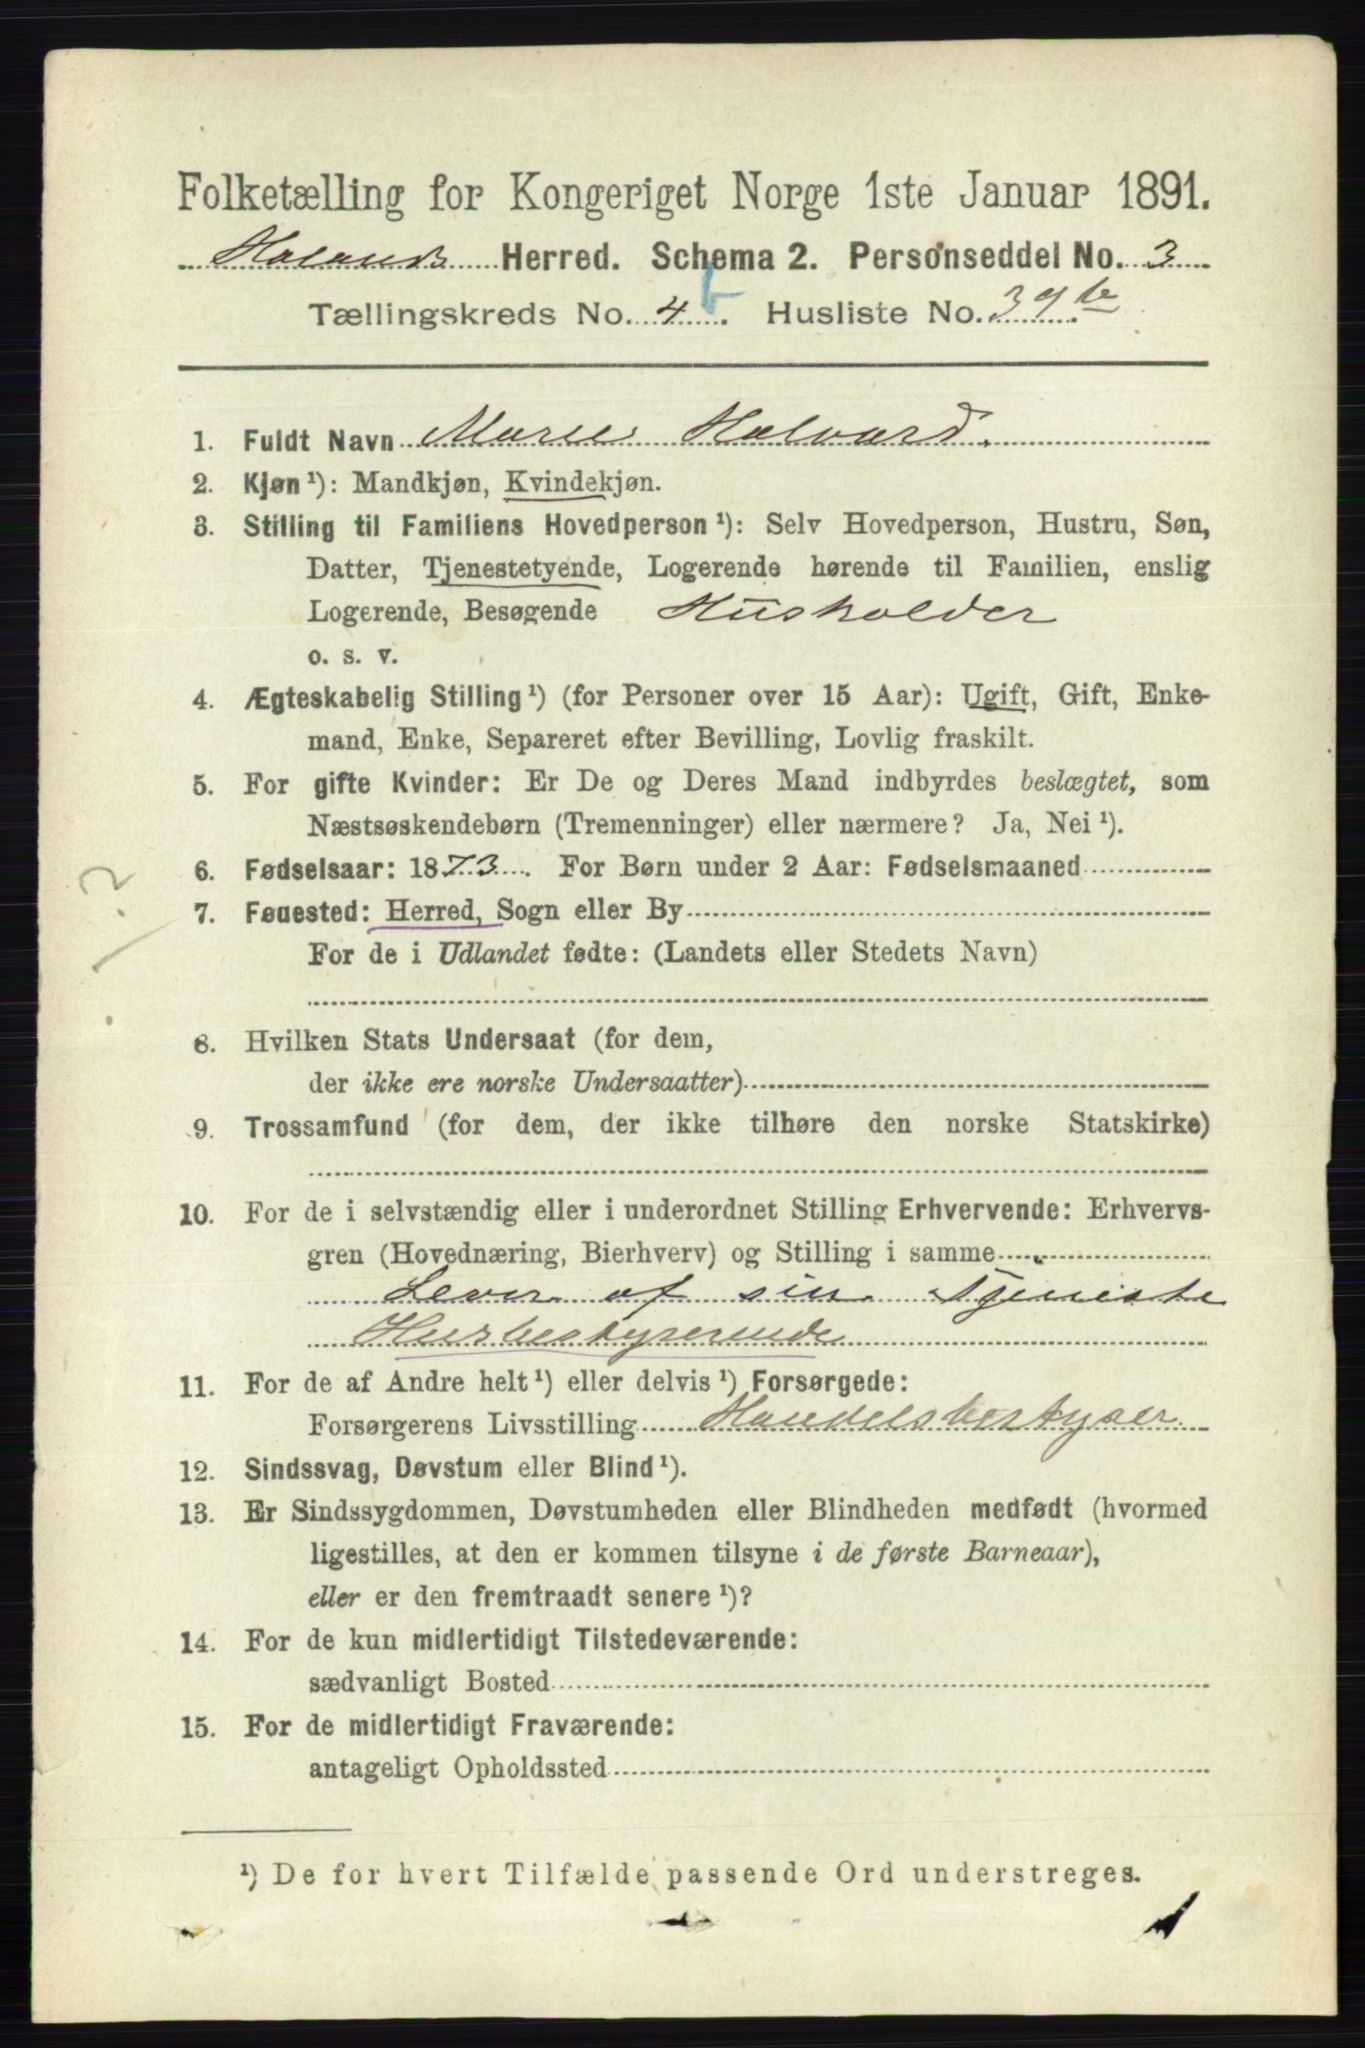 Folketælling for Kongeriget Norge 1ste Januar 1891.
Holands Herred. Schema 2. Personseddel No. 3
Tællingskreds No. 4 b. Husliste No. 39 b
1. Fuldt Navn Marie Halvard.
2. Kjøn ¹): Mandkjøn, Kvindekjøn.
3. Stilling til Familiens Hovedperson ¹): Selv Hovedperson, Hustru, Søn,
Datter, Tjenestetyende, Logerende hørende til Familien, enslig
Logerende, Besøgende Husholder
o. s. v.
4. Ægteskabelig Stilling ¹) (for Personer over 15 Aar): Ugift, Gift, Enke-
mand, Enke, Separeret efter Bevilling, Lovlig fraskilt.
5. For gifte Kvinder: Er De og Deres Mand indbyrdes beslægtet, som
Næstsøskendebørn (Tremenninger) eller nærmere? Ja, Nei ¹).
6. Fødselsaar: 1873. For Børn under 2 Aar: Fødselsmaaned
7. Føuested: Herred, Sogn eller By
For de i Udlandet fødte: (Landets eller Stedets Navn)
8. Hvilken Stats Undersaat (for dem,
der ikke ere norske Undersaatter)
9. Trossamfund (for dem, der ikke tilhøre den norske Statskirke)
10. For de i selvstændig eller i underordnet Stilling Erhvervende: Erhvervs-
gren (Hovednæring, Bierhverv) og Stilling i samme
Lever af sin Tjeneste
Husbestyrerinde
11. For de af Andre helt ¹) eller delvis ¹) Forsørgede:
Forsørgerens Livsstilling Handelsbestyrer.
12. Sindssvag, Døvstum eller Blind ¹).
13. Er Sindssygdommen, Døvstumheden eller Blindheden medfødt (hvormed
ligestilles, at den er kommen tilsyne i de første Barneaar),
eller er den fremtraadt senere ¹)?
14. For de kun midlertidigt Tilstedeværende:
sædvanligt Bosted
15. For de midlertidigt Fraværende:
antageligt Opholdssted
¹) De for hvert Tilfælde passende Ord understreges.